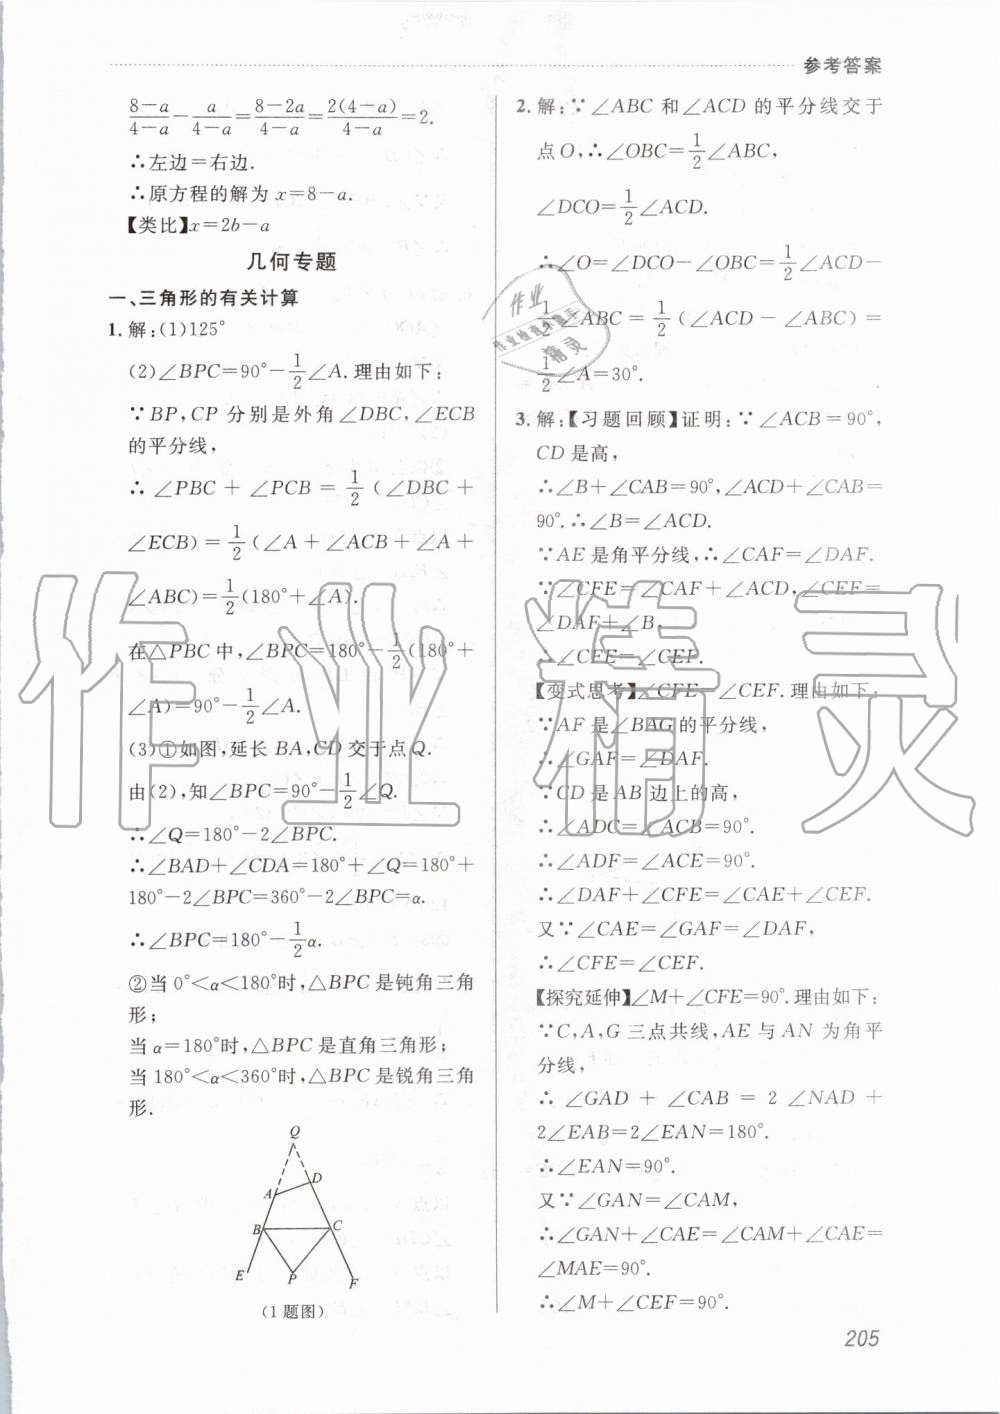 参考答案
(8-a)/(4-a)-a/(4-a)=(8-2a)/(4-a)=2(4-a)/(4-a)=2.
∴左边=右边.
∴原方程的解为x=8-a.
【类比】x=2b-a
几何专题
一、三角形的有关计算
1.解:(1)125°
(2)∠BPC=90°-1/2∠A.理由如下:
∵BP,CP分别是外角∠DBC,∠ECB
的平分线,
∴∠PBC+∠PCB=1/2(∠DBC+
∠ECB)=1/2(∠A+∠ACB+∠A+
∠ABC)=1/2(180°+∠A).
在△PBC中,∠BPC=180°-1/2(180°+
∠A)=90°-1/2∠A.
(3)①如图,延长BA,CD交于点Q.
由(2),知∠BPC=90°-1/2∠Q.
∴∠Q=180°-2∠BPC.
∴∠BAD+∠CDA=180°+∠Q=180°+
180°-2∠BPC=360°-2∠BPC=α.
∴∠BPC=180°-1/2α.
②当0°<α<180°时,△BPC是钝角三角
形;
当α=180°时,△BPC是直角三角形;
当180°<α<360°时,△BPC是锐角三角
形.
Q
A D
B C
E P F
(1题图)
2.解:∵∠ABC和∠ACD的平分线交于
点O,∴∠OBC=1/2∠ABC,
∠DCO=1/2∠ACD.
∴∠O=∠DCO-∠OBC=1/2∠ACD-
1/2∠ABC=1/2(∠ACD-∠ABC)=
1/2∠A=30°.
3.解:【习题回顾】证明:∵∠ACB=90°,
CD是高,
∴∠B+∠CAB=90°,∠ACD+∠CAB=
90°.∴∠B=∠ACD.
∵AE是角平分线,∴∠CAF=∠DAF.
∵∠CFE=∠CAF+∠ACD,∠CEF=
∠DAF+∠B,
∴∠CFE=∠CEF.
【变式思考】∠CFE=∠CEF.理由如下:
∵AF是∠BAG的平分线,
∴∠GAF=∠DAF.
∵CD是AB边上的高,
∴∠ADC=∠ACB=90°.
∴∠ADF=∠ACE=90°.
∴∠DAF+∠CFE=∠CAE+∠CEF.
又∵∠CAE=∠GAF=∠DAF,
∴∠CFE=∠CEF.
【探究延伸】∠M+∠CFE=90°.理由如下:
∵C,A,G三点共线,AE与AN为角平
分线,
∴∠GAD+∠CAB=2∠NAD+
2∠EAB=2∠EAN=180°.
∴∠EAN=90°.
又∵∠GAN=∠CAM,
∴∠GAN+∠CAE=∠CAM+∠CAE=
∠MAE=90°.
∴∠M+∠CEF=90°.
205
作业精灵
作业
作业检查小助手
精灵